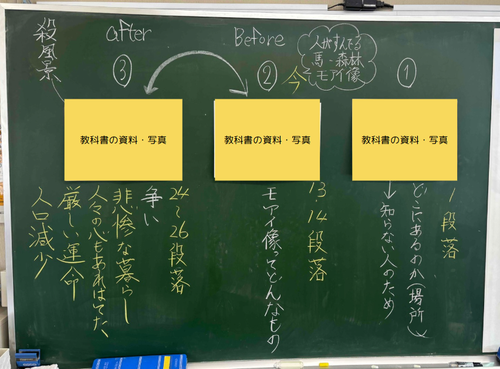 ①
教科書の資料・写真
1段落
どこにあるのか(場所)
↓知らない人のため
Before
人がすんでる
馬・森林
モアイ像
今
②
教科書の資料・写真
13・14段落
モアイ像ってどんなもの
after
③
殺風景
教科書の資料・写真
24〜26段落
争い
悲惨な暮らし
人々の心もあれはてた、
厳しい運命
人口減少